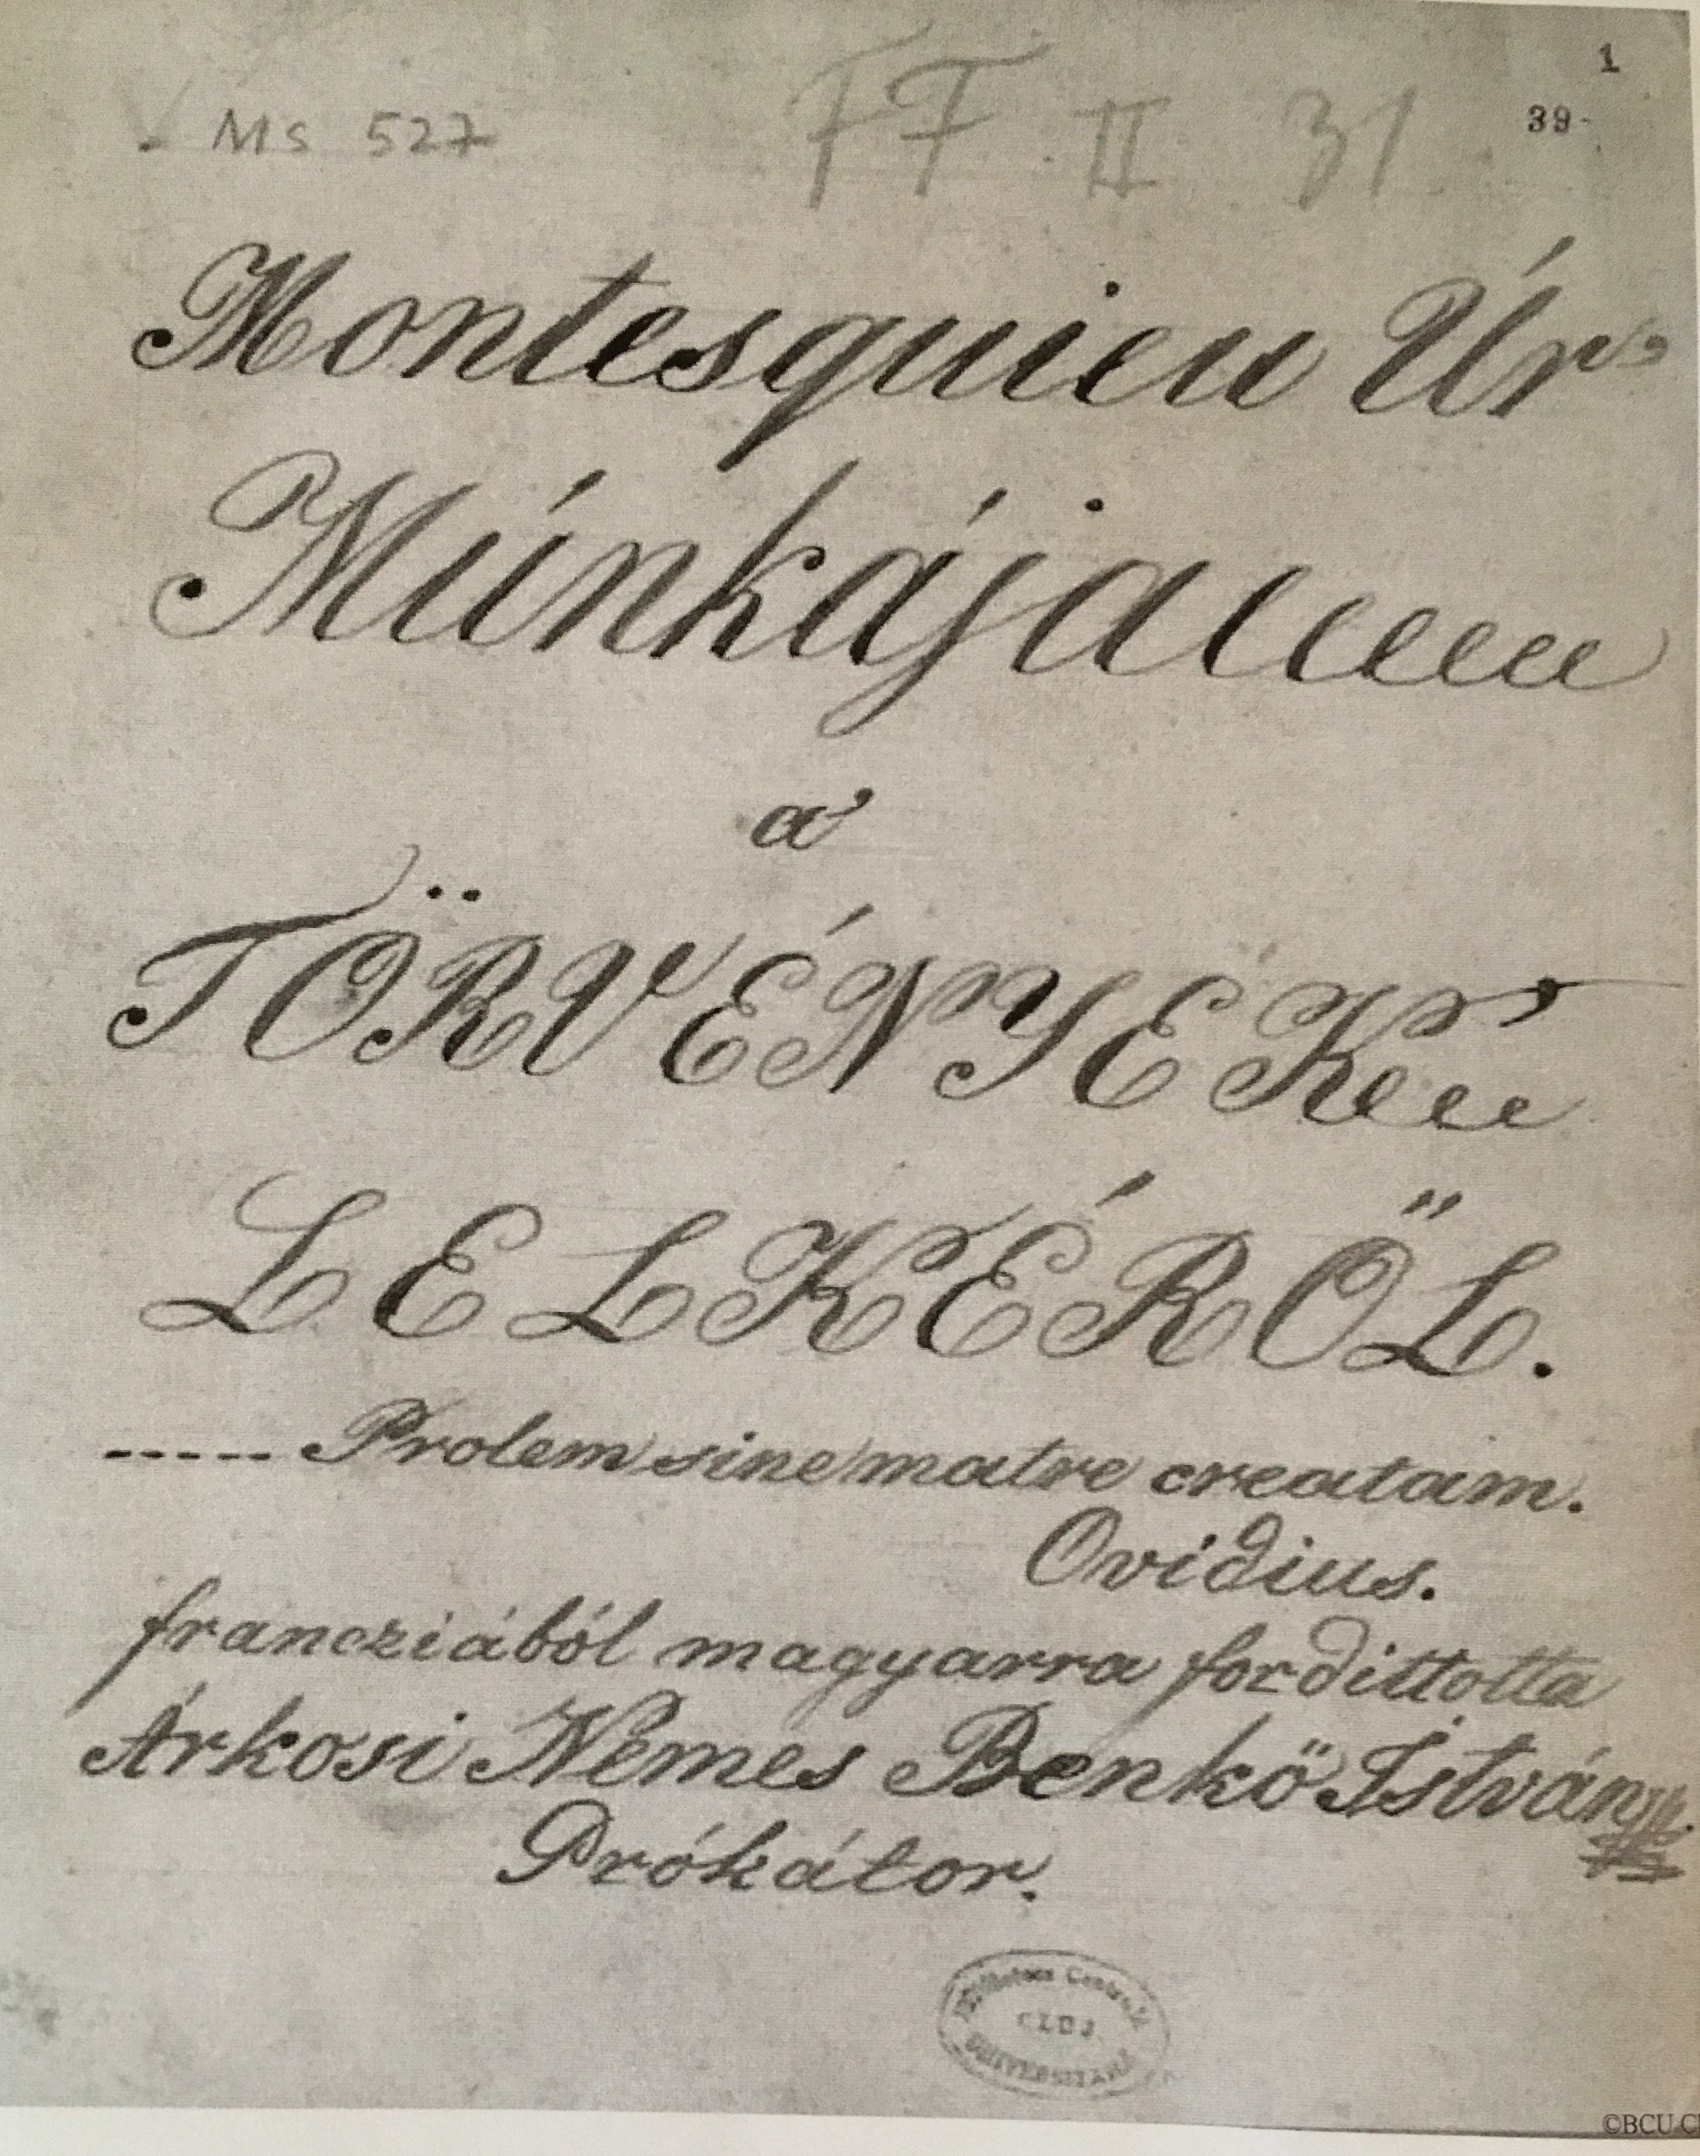 1
Ms 527 FF II 31 39-
Montesquieu Úr'
Múnkája
a'
TÖRVÉNYEK'
LELKÉRŐL.
----- Prolem sine matre creatam.
Ovidius.
francziából magyarra fordittotta
Árkosi Nemes Benkö István
Prókátor.
Biblioteca Centrală
CLUJ
UNIVERSITARĂ
©BCU